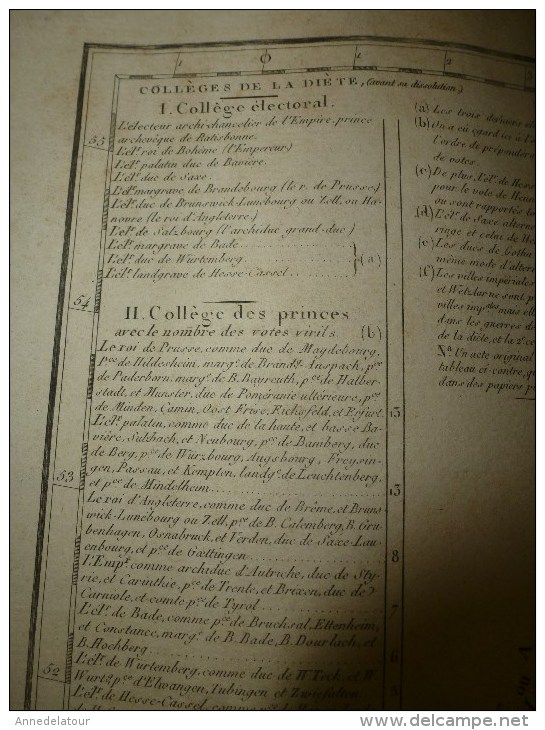 0
1
2
COLLÈGES DE LA DIÈTE, (avant sa dissolution.)
I. Collège électoral.
L'électeur archi-chancelier de l'Empire, prince
archevêque de Ratisbonne.
L'él.r roi de Bohême (l'Empereur)
L'él.r palatin duc de Bavière.
L'él.r duc de Saxe
L'él.r margrave de Brandebourg (le r. de Prusse)
L'él.r duc de Brunswick-Lunebourg ou Zell, ou Ha-
novre (le roi d'Angleterre)
L'él.r de Salzbourg (l'archiduc grand-duc)
L'él.r margrave de Bade
L'él.r duc de Wurtemberg (a)
L'él.r landgrave de Hesse-Cassel
II. Collège des princes
avec le nombre des votes virils (b)
Le roi de Prusse, comme duc de Magdebourg,
p.ce de Hildesheim, marg.e de Brand.g Anspach, p.ce
de Paderborn, marg.e de B. Bayreuth, p.ce de Halber-
stadt, et Munster, duc de Poméranie ultérieure, p.ce
de Minden, Camin, Oost Frise, Eichsfeld, et Erfurt. 13
L'él.r palatin, comme duc de la haute, et basse Ba-
vière, Sulzbach, et Neubourg, p.ce de Bamberg, duc
de Berg, p.ce de Würzbourg, Augsbourg, Freysin-
gen, Passau, et Kempten, landg.e de Leuchtenberg,
et p.ce de Mindelheim 13
Le roi d'Angleterre, comme duc de Brême, et Bruns
wick-Lunébourg ou Zell, p.ce de B. Calemberg, B. Gru-
benhagen, Osnabruck, et Verden, duc de Saxe-Lau-
enbourg, et p.ce de Gœttingen 8
L'Emp.r comme archiduc d'Autriche, duc de Sty-
rie, et Carinthie, p.ce de Trente, et Brixen, duc de
Carniole, et comte p.ce de Tyrol 7
L'él.r de Bade, comme p.ce de Bruchsal, Ettenheim,
et Constance, marg.e de B. Bade, B. Dourlach, et
B. Hochberg 6
L'él.r de Wurtemberg, comme duc de W. Teck, et W.
Wurt.g p.ce d'Elwangen, Tubingen et Zwiefalten
L'él.r de Hesse-Cassel, comme
(a) Les trois derniers
(b) On a eu égard
l'ordre de
de votes.
(c) De plus, L'él.r de Hesse
pour le vote de
ou sont rapportés
(d) L'él.r de Saxe
ringe et celui de
(e) Les ducs de
même mode
(f) Les villes impériales
et Wetzlar ne sont
villes
dans les guerres
de la diète, et la 2.e
N.a Un acte original
tableau ci-contre,
dans des papiers
55
54
53
52
Annedelatour
delcampe.net